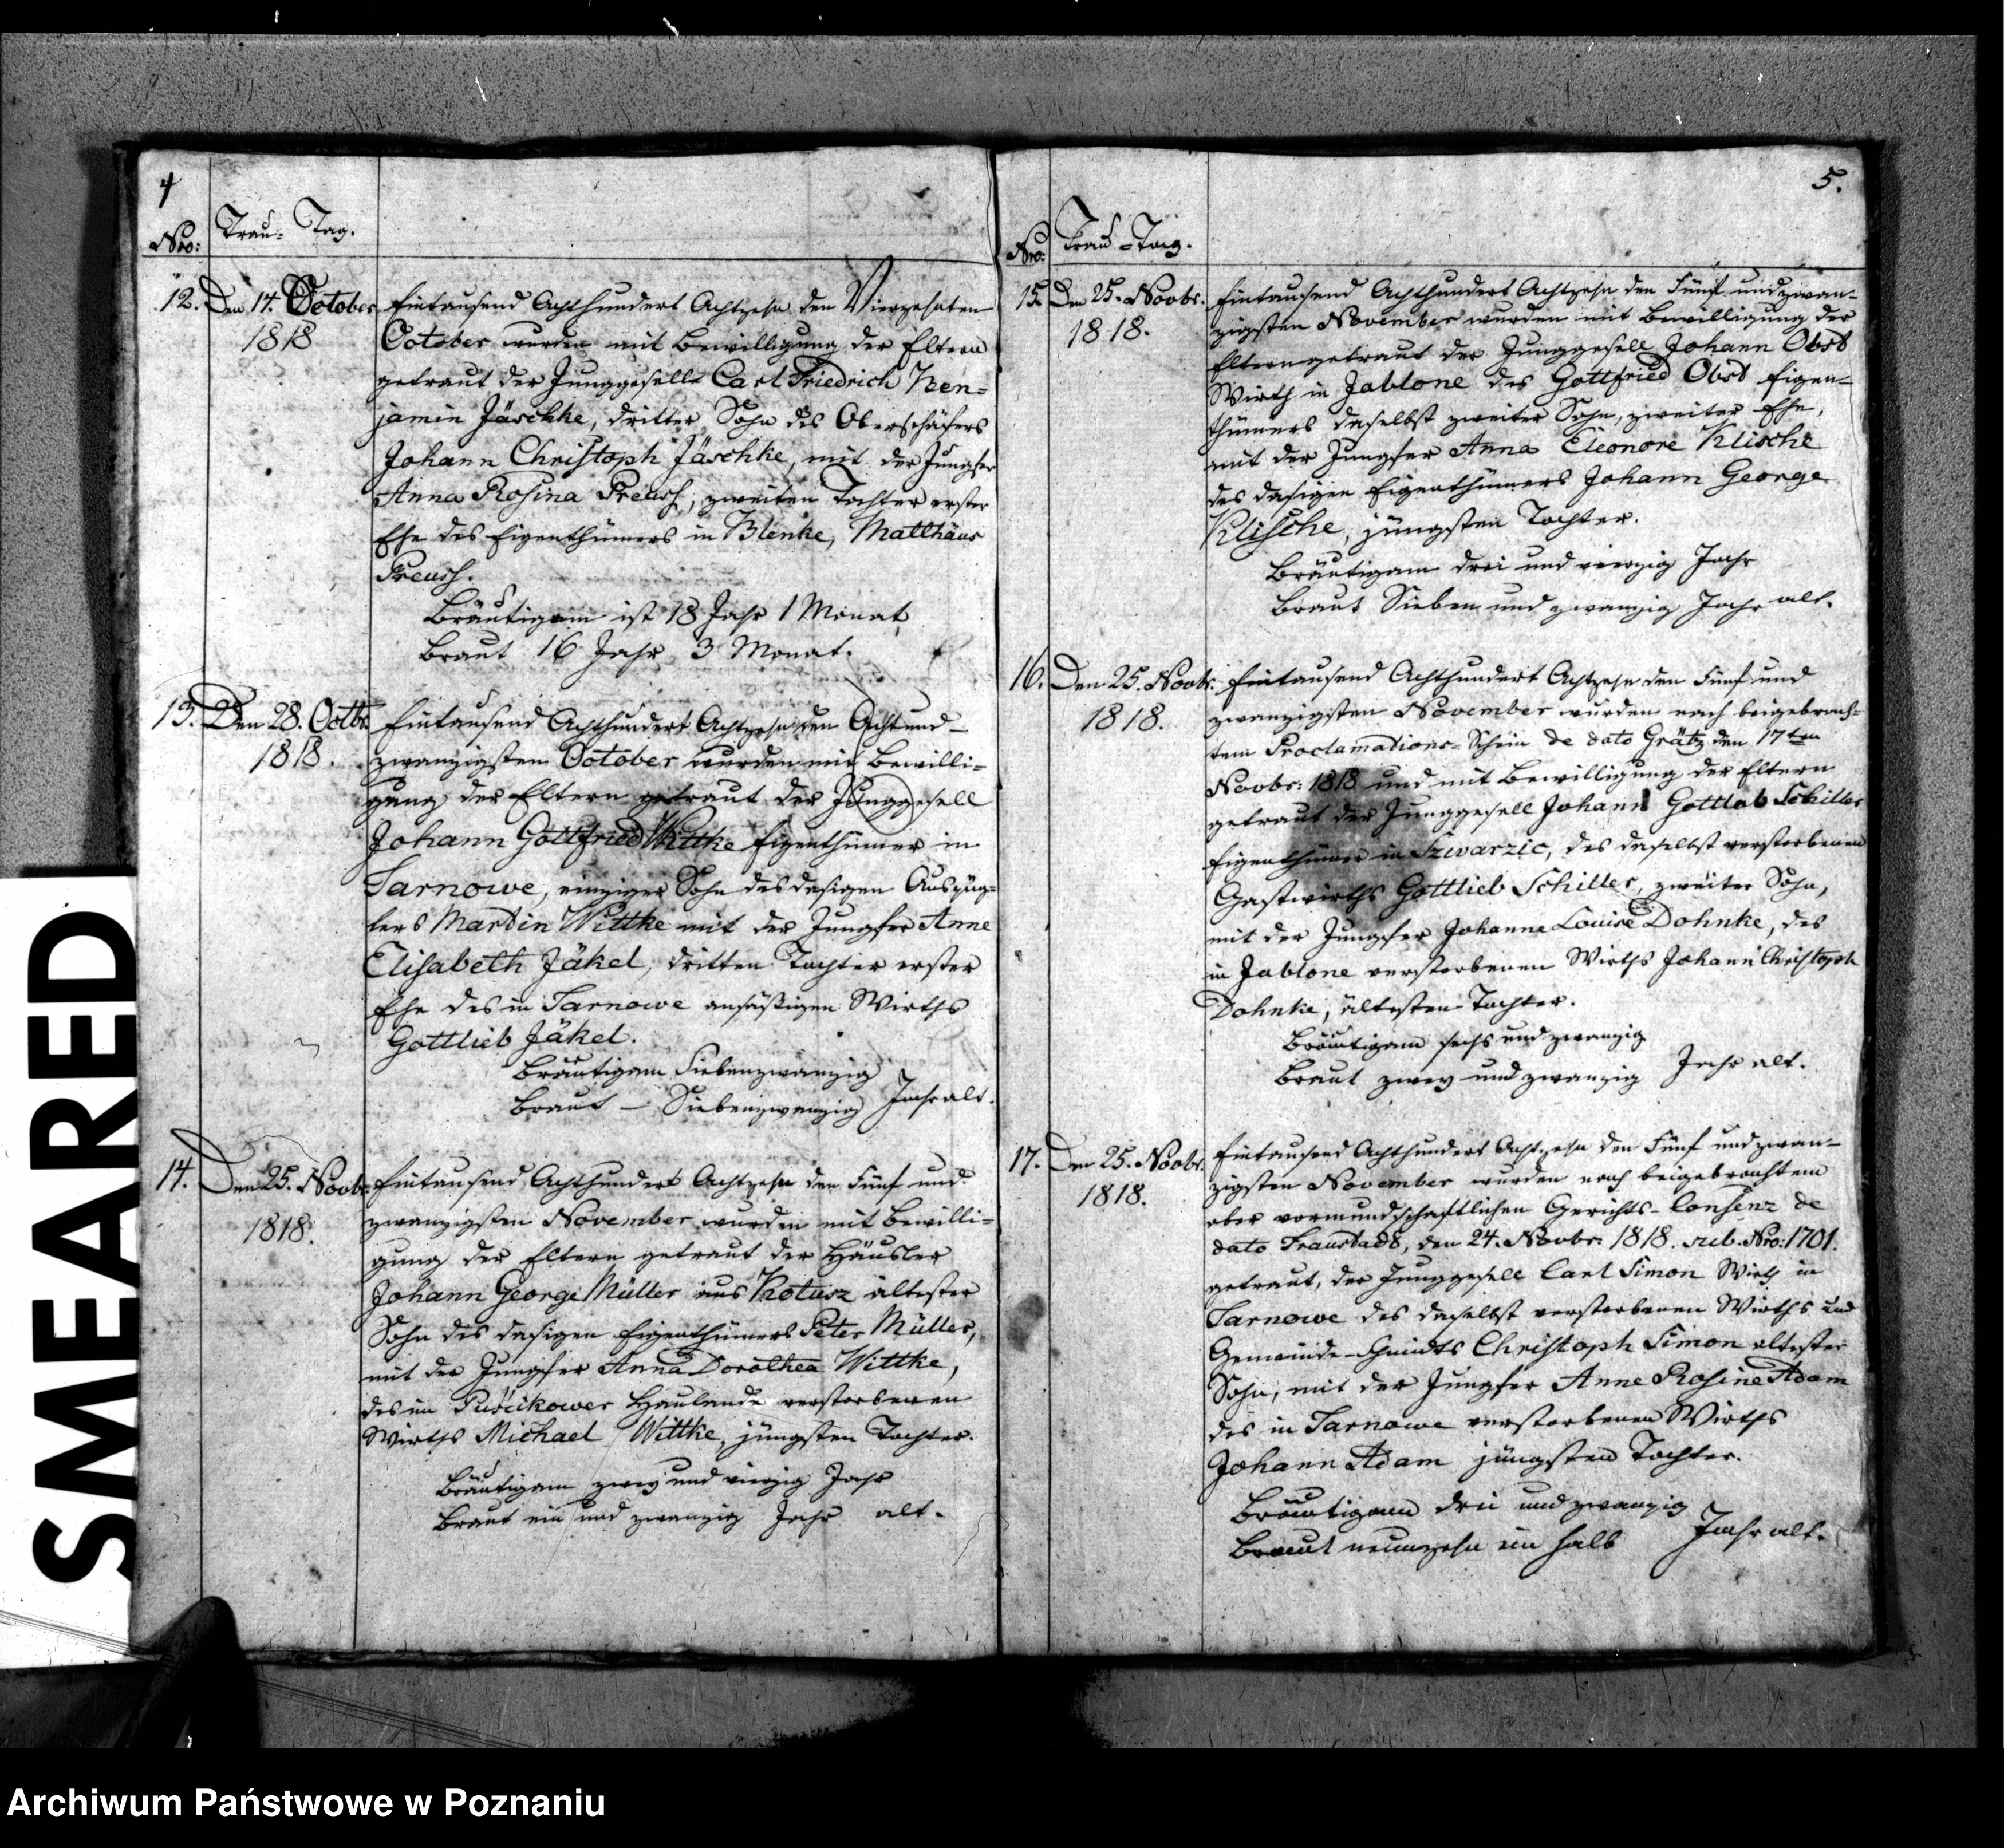 4
Nro:
Trau- Tag.
12. Den 14. October
1818
Eintausend Achthundert Achtzehn den Vierzehnten
October wurden mit Bewilligung der Eltern
getraut der Junggeselle Carl Friedrich Ben=
jamin Jäschke, dritter Sohn des Oberschäfers
Johann Christoph Jäschke, mit der Jungfer
Anna Rosina Preush, zweiten Tochter erster
Ehe des Eigenthümers in Blenke, Matthäus
Preush.
Bräutigam ist 18 Jahr 1 Monat
Braut 16 Jahr 3 Monat.
13. Den 28. Octbr
1818.
Eintausend Achthundert Achtzehn den Acht und
zwanzigsten October wurden mit Bewilli=
gung der Eltern getraut der Junggesell
Johann Gottfried Wittke Eigenthümer in
Tarnowe, einziger Sohn des dasigen Auszüg=
lers Martin Wittke mit der Jungfer Anne
Elisabeth Jäkel, dritten Tochter erster
Ehe des in Tarnowe ansäßigen Wirths
Gottlieb Jäkel.
Bräutigam Siebenzwanzig
Braut — Siebenzwanzig Jahr alt.
14. Den 25. Novbr
1818.
Eintausend Achthundert Achtzehn den Fünf und
zwanzigsten November wurden mit Bewilli=
gung der Eltern getraut der Häusler
Johann George Müller aus Kotusz ältester
Sohn des dasigen Eigenthümers Peter Müller,
mit der Jungfer Anna Dorothea Wittke,
des im Haulande verstorbenen
Wirths Michael Wittke, jüngsten Tochter.
Bräutigam zwey und vierzig Jahr
Braut ein und zwanzig Jahr alt.
5.
Nro:
Trau-Tag.
15. Den 25. Novbr.
1818.
Eintausend Achthundert Achtzehn den Fünf und zwan-
zigsten November wurden mit Bewilligung der
Eltern getraut der Junggesell Johann Obst
Wirth in Jablone des Gottfried Obst Eigen=
thümers daselbst zweiter Sohn, zweiter Ehe,
mit der Jungfer Anna Eleonore Klische
des dasigen Eigenthümers Johann George
Klische, jüngsten Tochter.
Bräutigam drei und vierzig Jahr
Braut Sieben und zwanzig Jahr alt.
16. Den 25. Novbr.
1818.
Eintausend Achthundert Achtzehn den Fünf und
zwanzigsten November wurden nach beigebrach=
tem Proclamations-Schein de dato Grätz den 17ten
Novbr: 1818 und mit Bewilligung der Eltern
getraut der Junggesell Johann Gottlob Schiller
Eigenthümer in Szwarzic, des daselbst verstorbenen
Gastwirths Gottlieb Schiller, zweiter Sohn,
mit der Jungfer Johanne Louise Dohnke, des
in Jablone verstorbenen Wirths Johann Christoph
Dohnke, ältesten Tochter.
Bräutigam sechs und zwanzig
Braut zwey und zwanzig Jahr alt.
17. Den 25. Novbr.
1818.
Eintausend Achthundert Achtzehn den Fünf und zwan-
zigsten November wurden nach beigebrachtem
ober vormundschaftlichen Gerichts-Consenz de
dato Fraustadt, den 24. Novbr. 1818. sub. Nro: 1701.
getraut, der Junggesell Carl Simon Wirth in
Tarnowe des daselbst verstorbenen Wirths und
Gemeinde Christoph Simon ältester
Sohn, mit der Jungfer Anne Rosine Adam
des in Tarnowe verstorbenen Wirths
Johann Adam jüngsten Tochter.
Bräutigam drei und zwanzig
Braut neunzehn ein halb Jahr alt.
SMEARED
Archiwum Państwowe w Poznaniu